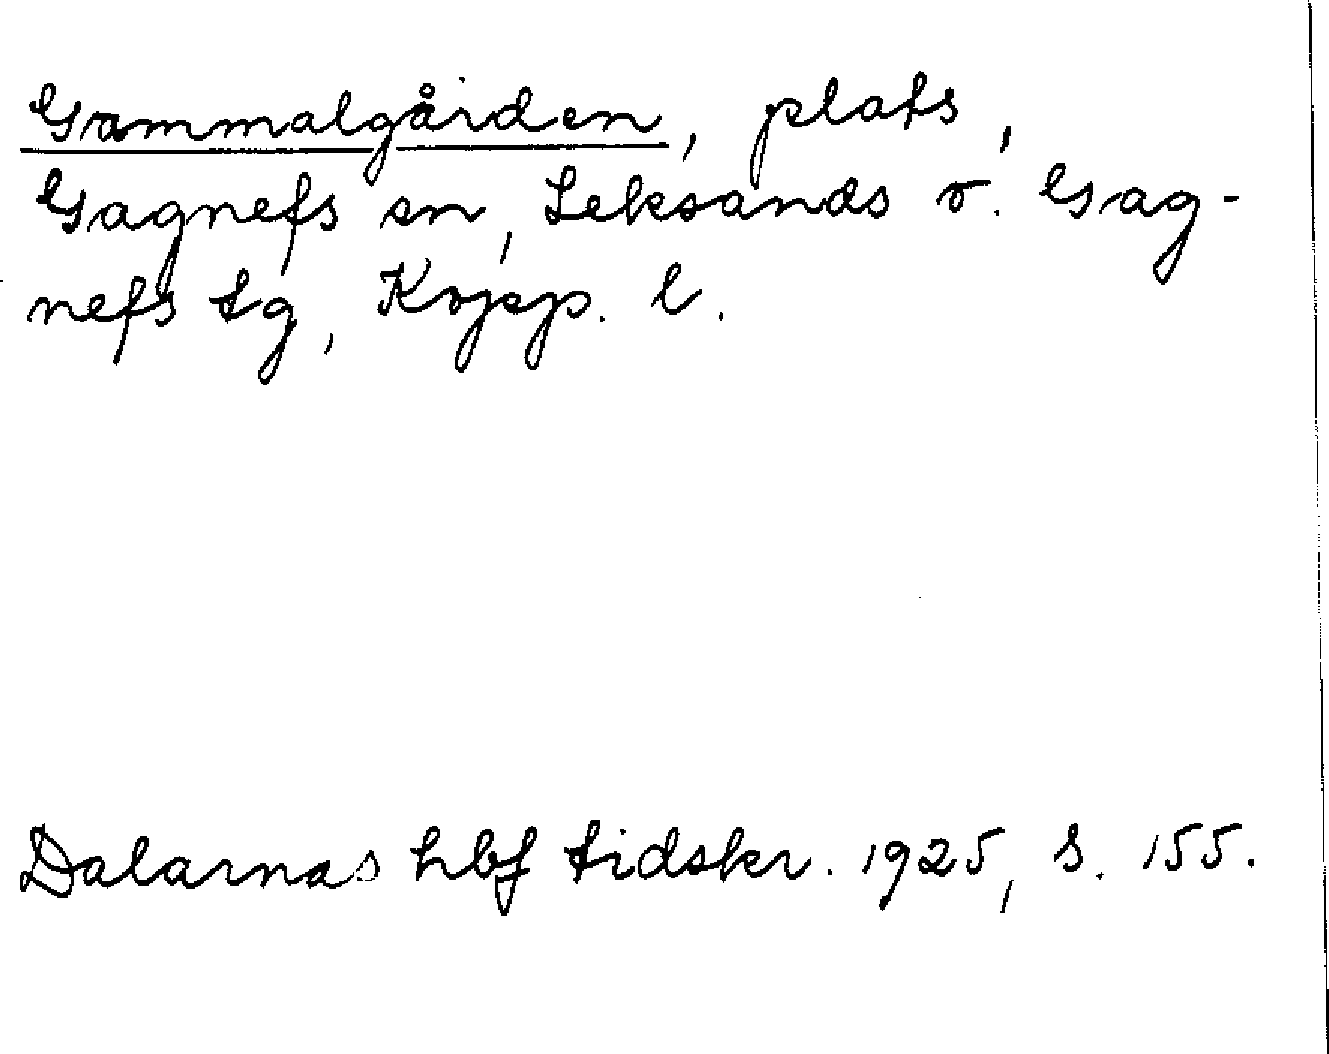 Gammalgården, plats,
Gagnefs sn, Leksands o. Gag-
nefs tg, Kopp. l.
Dalarnas hbf tidskr. 1925, s. 155.